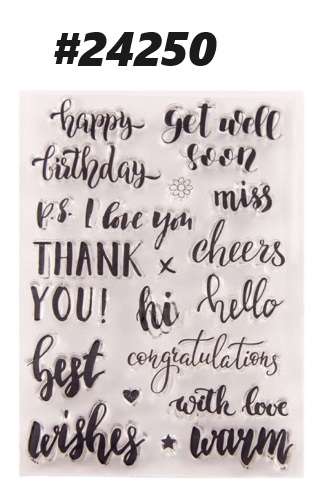 #24250
happy
birthday
get well
soon
miss
p.s. I love you
cheers
THANK x
YOU!
hi
hello
best
congratulations
with love
wishes
warm